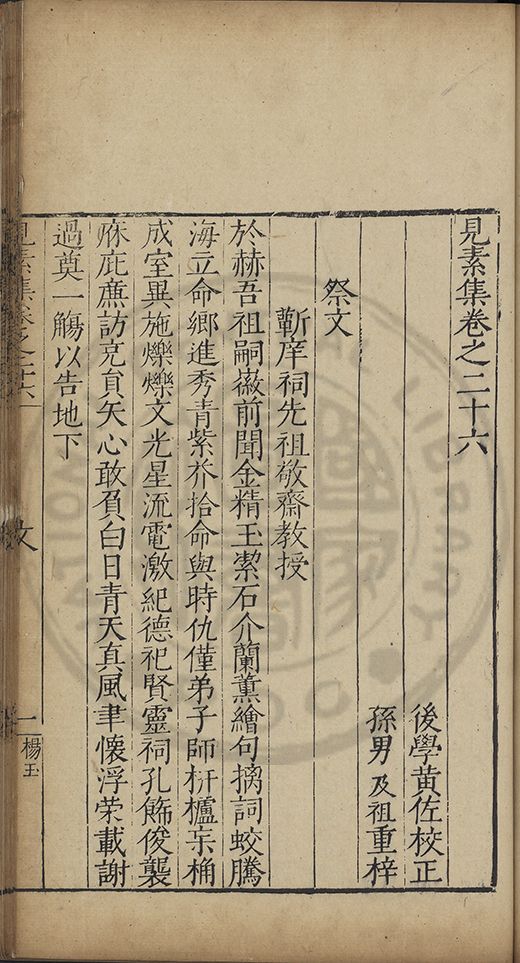 見素集卷之二十六
後學黃佐校正
孫男及祖重梓
祭文
蘄庠祠先祖敬齋教授
於赫吾祖嗣徽前聞金精玉潔石介蘭薰繪句摛詞蛟騰
海立命鄉進秀青紫芥拾命與時仇僅弟子師枅櫨杗桷
成室異施爍爍文光星流電激紀德祀賢靈祠孔飾俊襲
庥庇廡訪克肯矢心敢負白日青天真風聿懷浮荣載謝
過奠一觴以告地下
見素集卷之二十六
文
一
楊玉